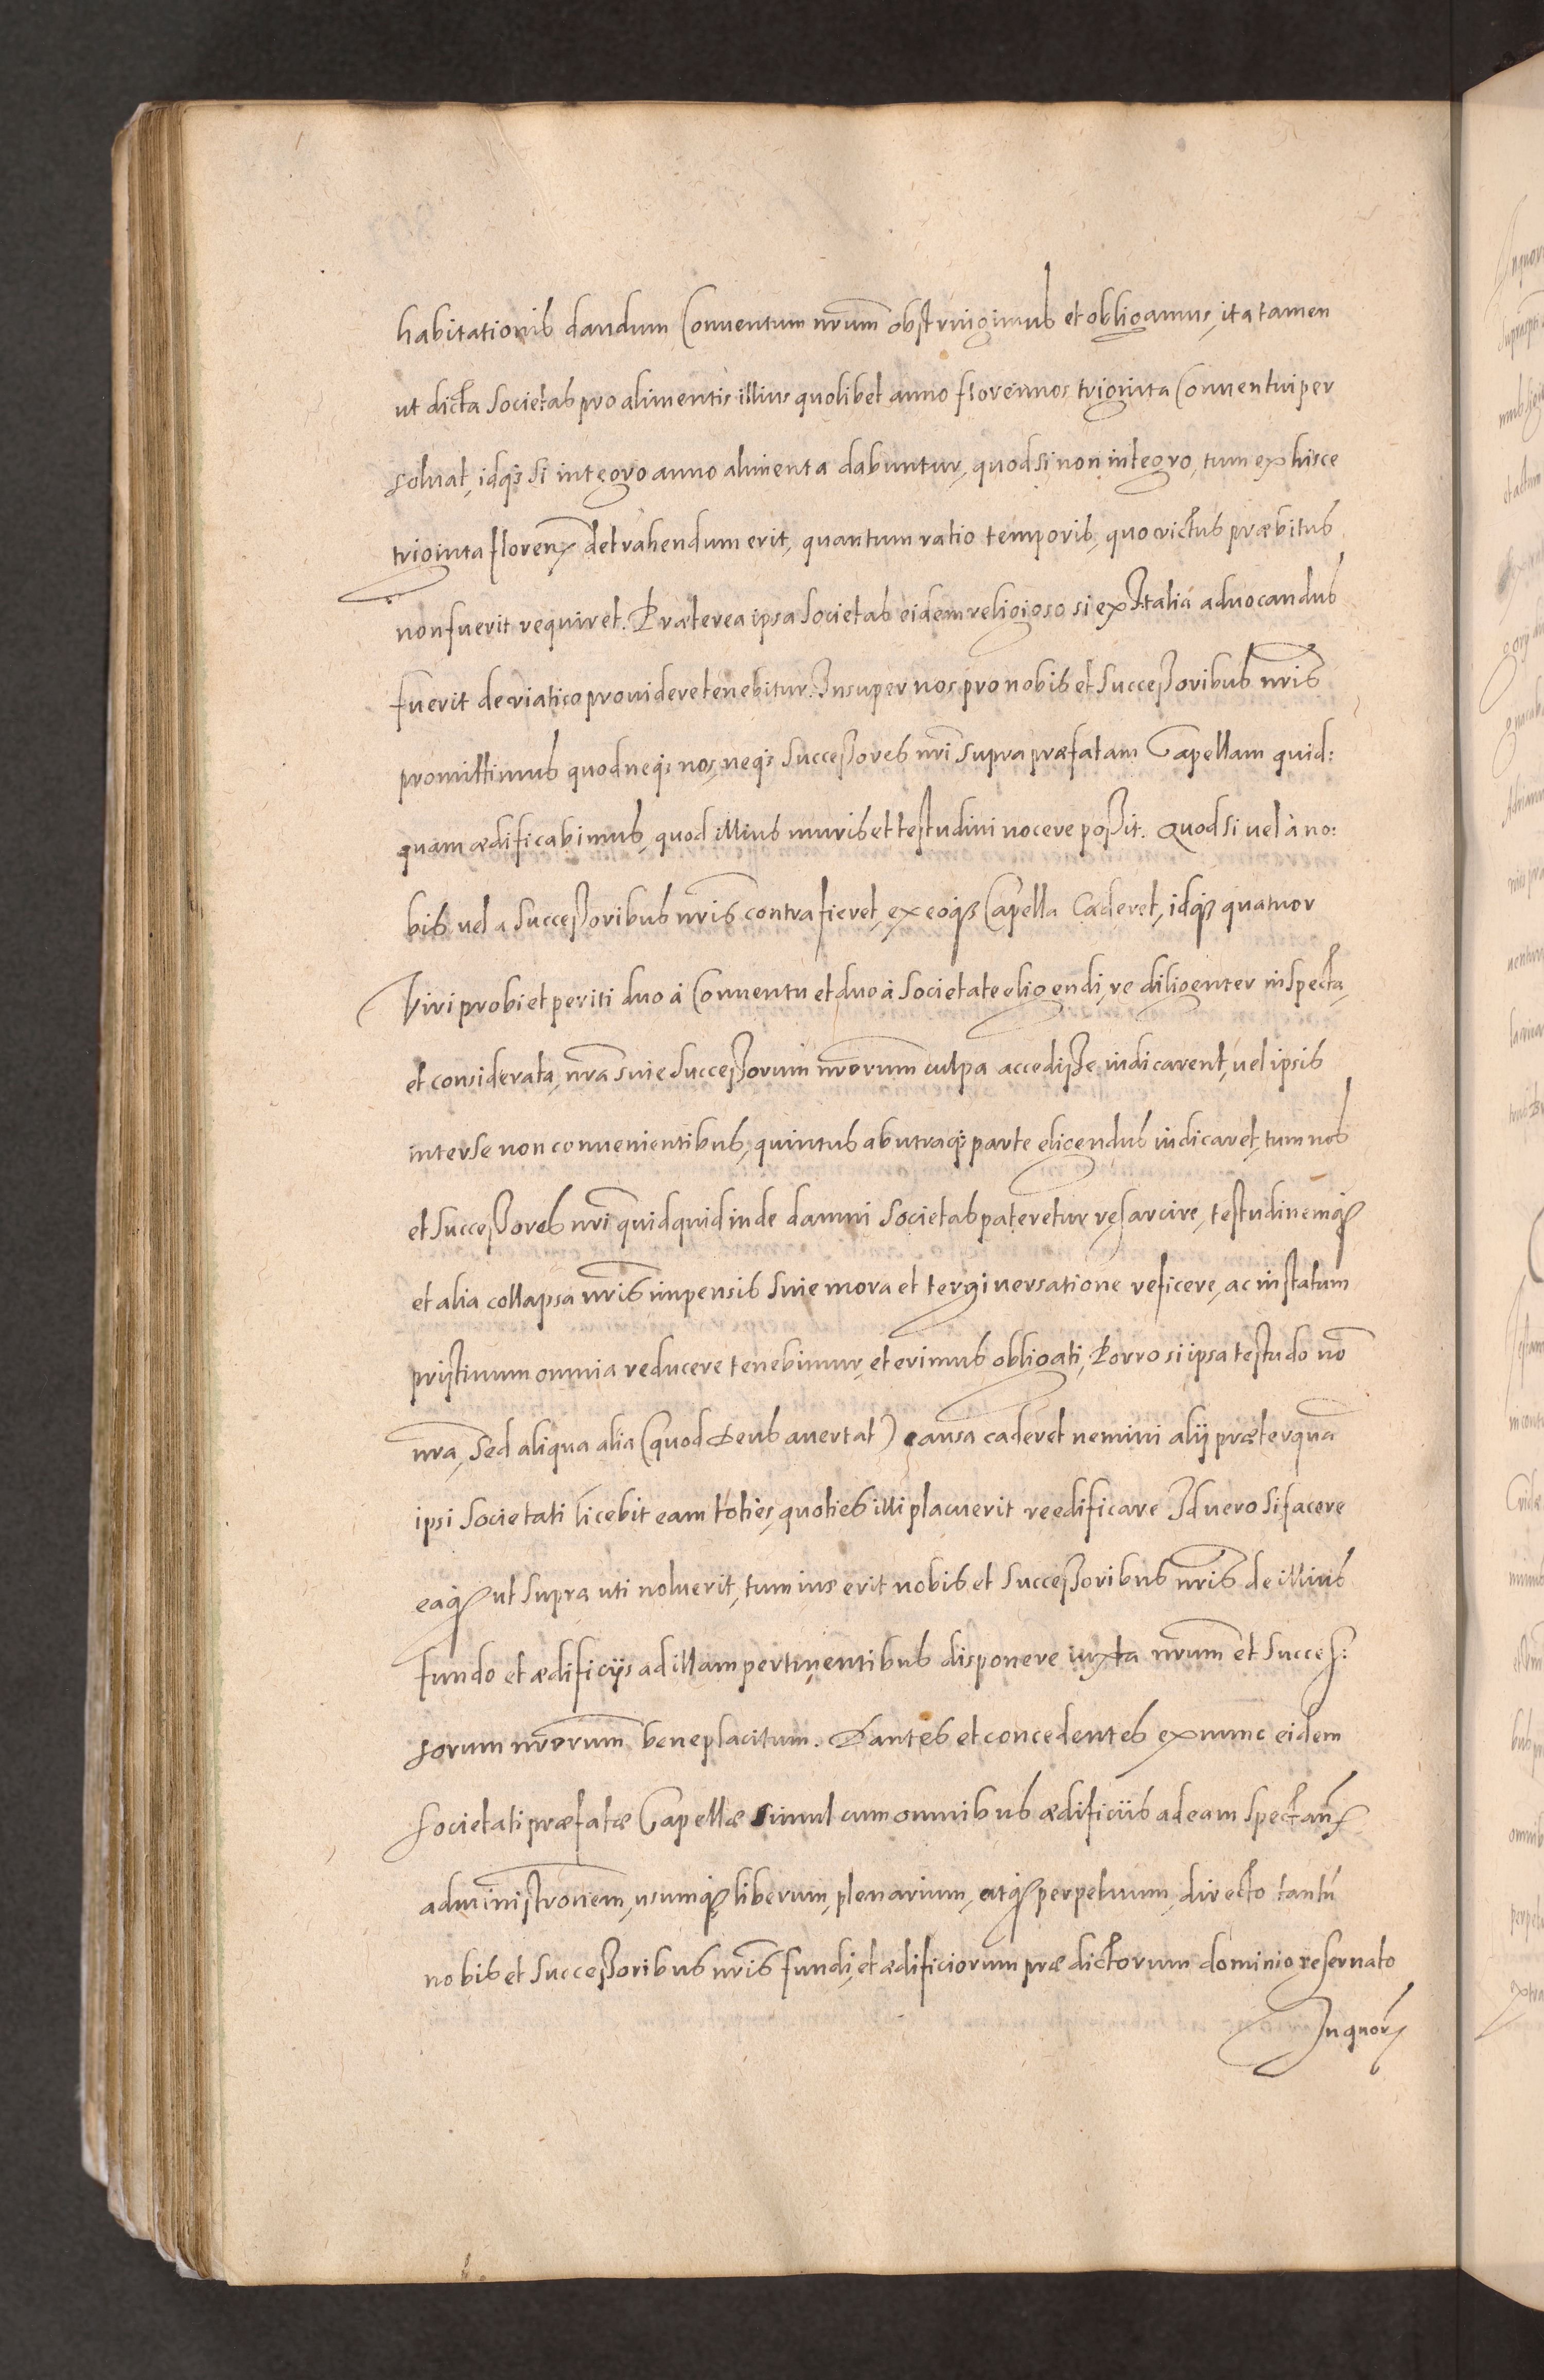 habitationis dandum Conuentum nr̃um obstringimus et obligamus, ita tamen
ut dicta Societas pro alimentis illius quolibet anno florennos triginta Conuentui per
soluat, idq́ȝ si integro anno alimenta dabuntur, quod si non integro, tum ex hisce
triginta florenꝝ detrahendum erit, quantum ratio temporis, quo victus præbitus
non fuerit requiret. Præterea ipsa Societas eidem religioso si ex Italia aduocandus
fuerit de viatico prouidere tenebitur. Insuper nos pro nobis et Successoribus nr̃is
promittimus quod neq́ȝ nos, neq́ȝ Successores nr̃i supra præfatam Capellam quid:
quam ædificabimus, quod illius muris et testudini nocere possit. Quod si uel à no:
bis uel a Successoribus nr̃is contra fieret, ex eoq́ȝ Capella Caderet, idq́ȝ quatuor
Viri probi et periti duo à Conuentu et duo à Societate eligendi, re diligenter inspecta,
et considerata, nr̃a siue Successorum nr̃orum culpa accedisse iudicarent, uel ipsis
inter se non conuenientibus, quintus ab utraq́ȝ parte eligendus iudicaret, tum nos
et Successores nr̃i quidquid inde damni Societas pateretur resarcire, testudinemq́ȝ
et alia collapsa nr̃is impensis sine mora et tergiuersatione reficere, ac in statum
pristinum omnia reducere tenebimur, et erimus obligati, Porro si ipsa testudo nō
nr̃a, sed aliqua alia (quod Deus auertat) causa caderet nemini alij præterquā
ipsi Societati licebit eam toties, quoties illi placuerit reedificare Id uero si facere
eaq́ȝ ut supra uti noluerit, tum ius erit nobis et Successoribus nr̃is de illius
fundo et ædificijs ad illam pertinentibus disponere iuxta nr̃um et Succes:
sorum nr̃orum beneplacitum. Dantes et concedentes ex nunc eidem
Societati præfatæ Capellæ simul cum omnibus ædificiis ad eam spectañ
administr̃onem, usumq́ȝ liberum, plenarium, atq́ȝ perpetuum, directo tantū
nobis et Successoribus nr̃is fundi, et ædificiorum prædictorum dominio reseruato
In quorꝝ